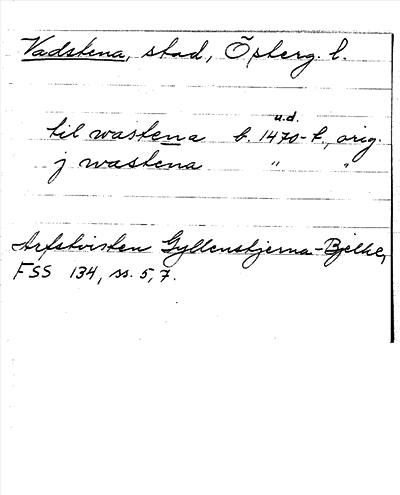 Vadstena, stad, Östberg. l.
u.d.
til wastena b. 1470-t., orig.
j wastena " "
Arfstvisten Gyllenstjerna-Bjelke,
FSS 134, ss. 5, 7.